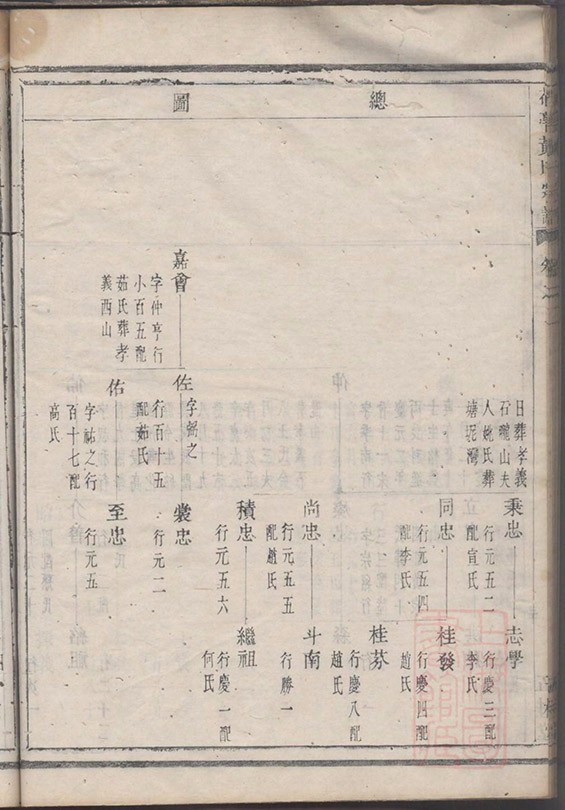 總圖
日葬孝義
石瓏山夫
人姚氏葬
塘坭灣
秉忠
行元五二
配宣氏
志學
行慶三配
李氏
同忠
行元五四
配李氏
桂發
行慶四配
趙氏
桂芬
行慶八配
趙氏
尚忠
行元五五
配趙氏
斗南
行勝一
積忠
行元五六
繼祖
行慶一配
何氏
嘉會
字仲亨行
小百五配
茹氏葬孝
義西山
佐
行百十五
配茹氏
裳忠
行元二
佑
字祐之行
百十七配
高氏
至忠
行元五